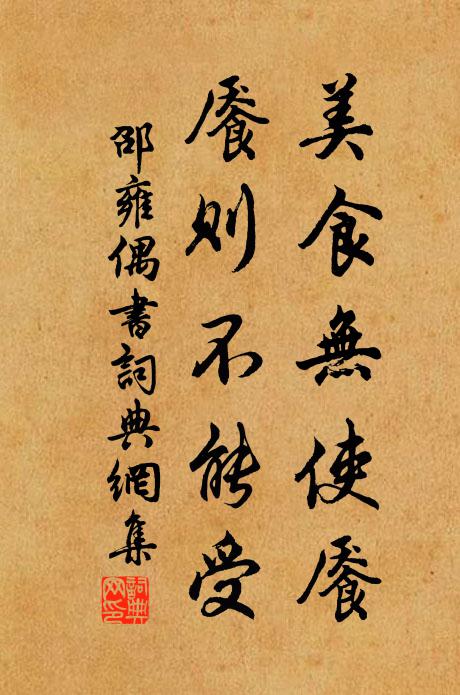 美食無使饜
饜則不能受
邵雍偶書詞典網集
詞典網印